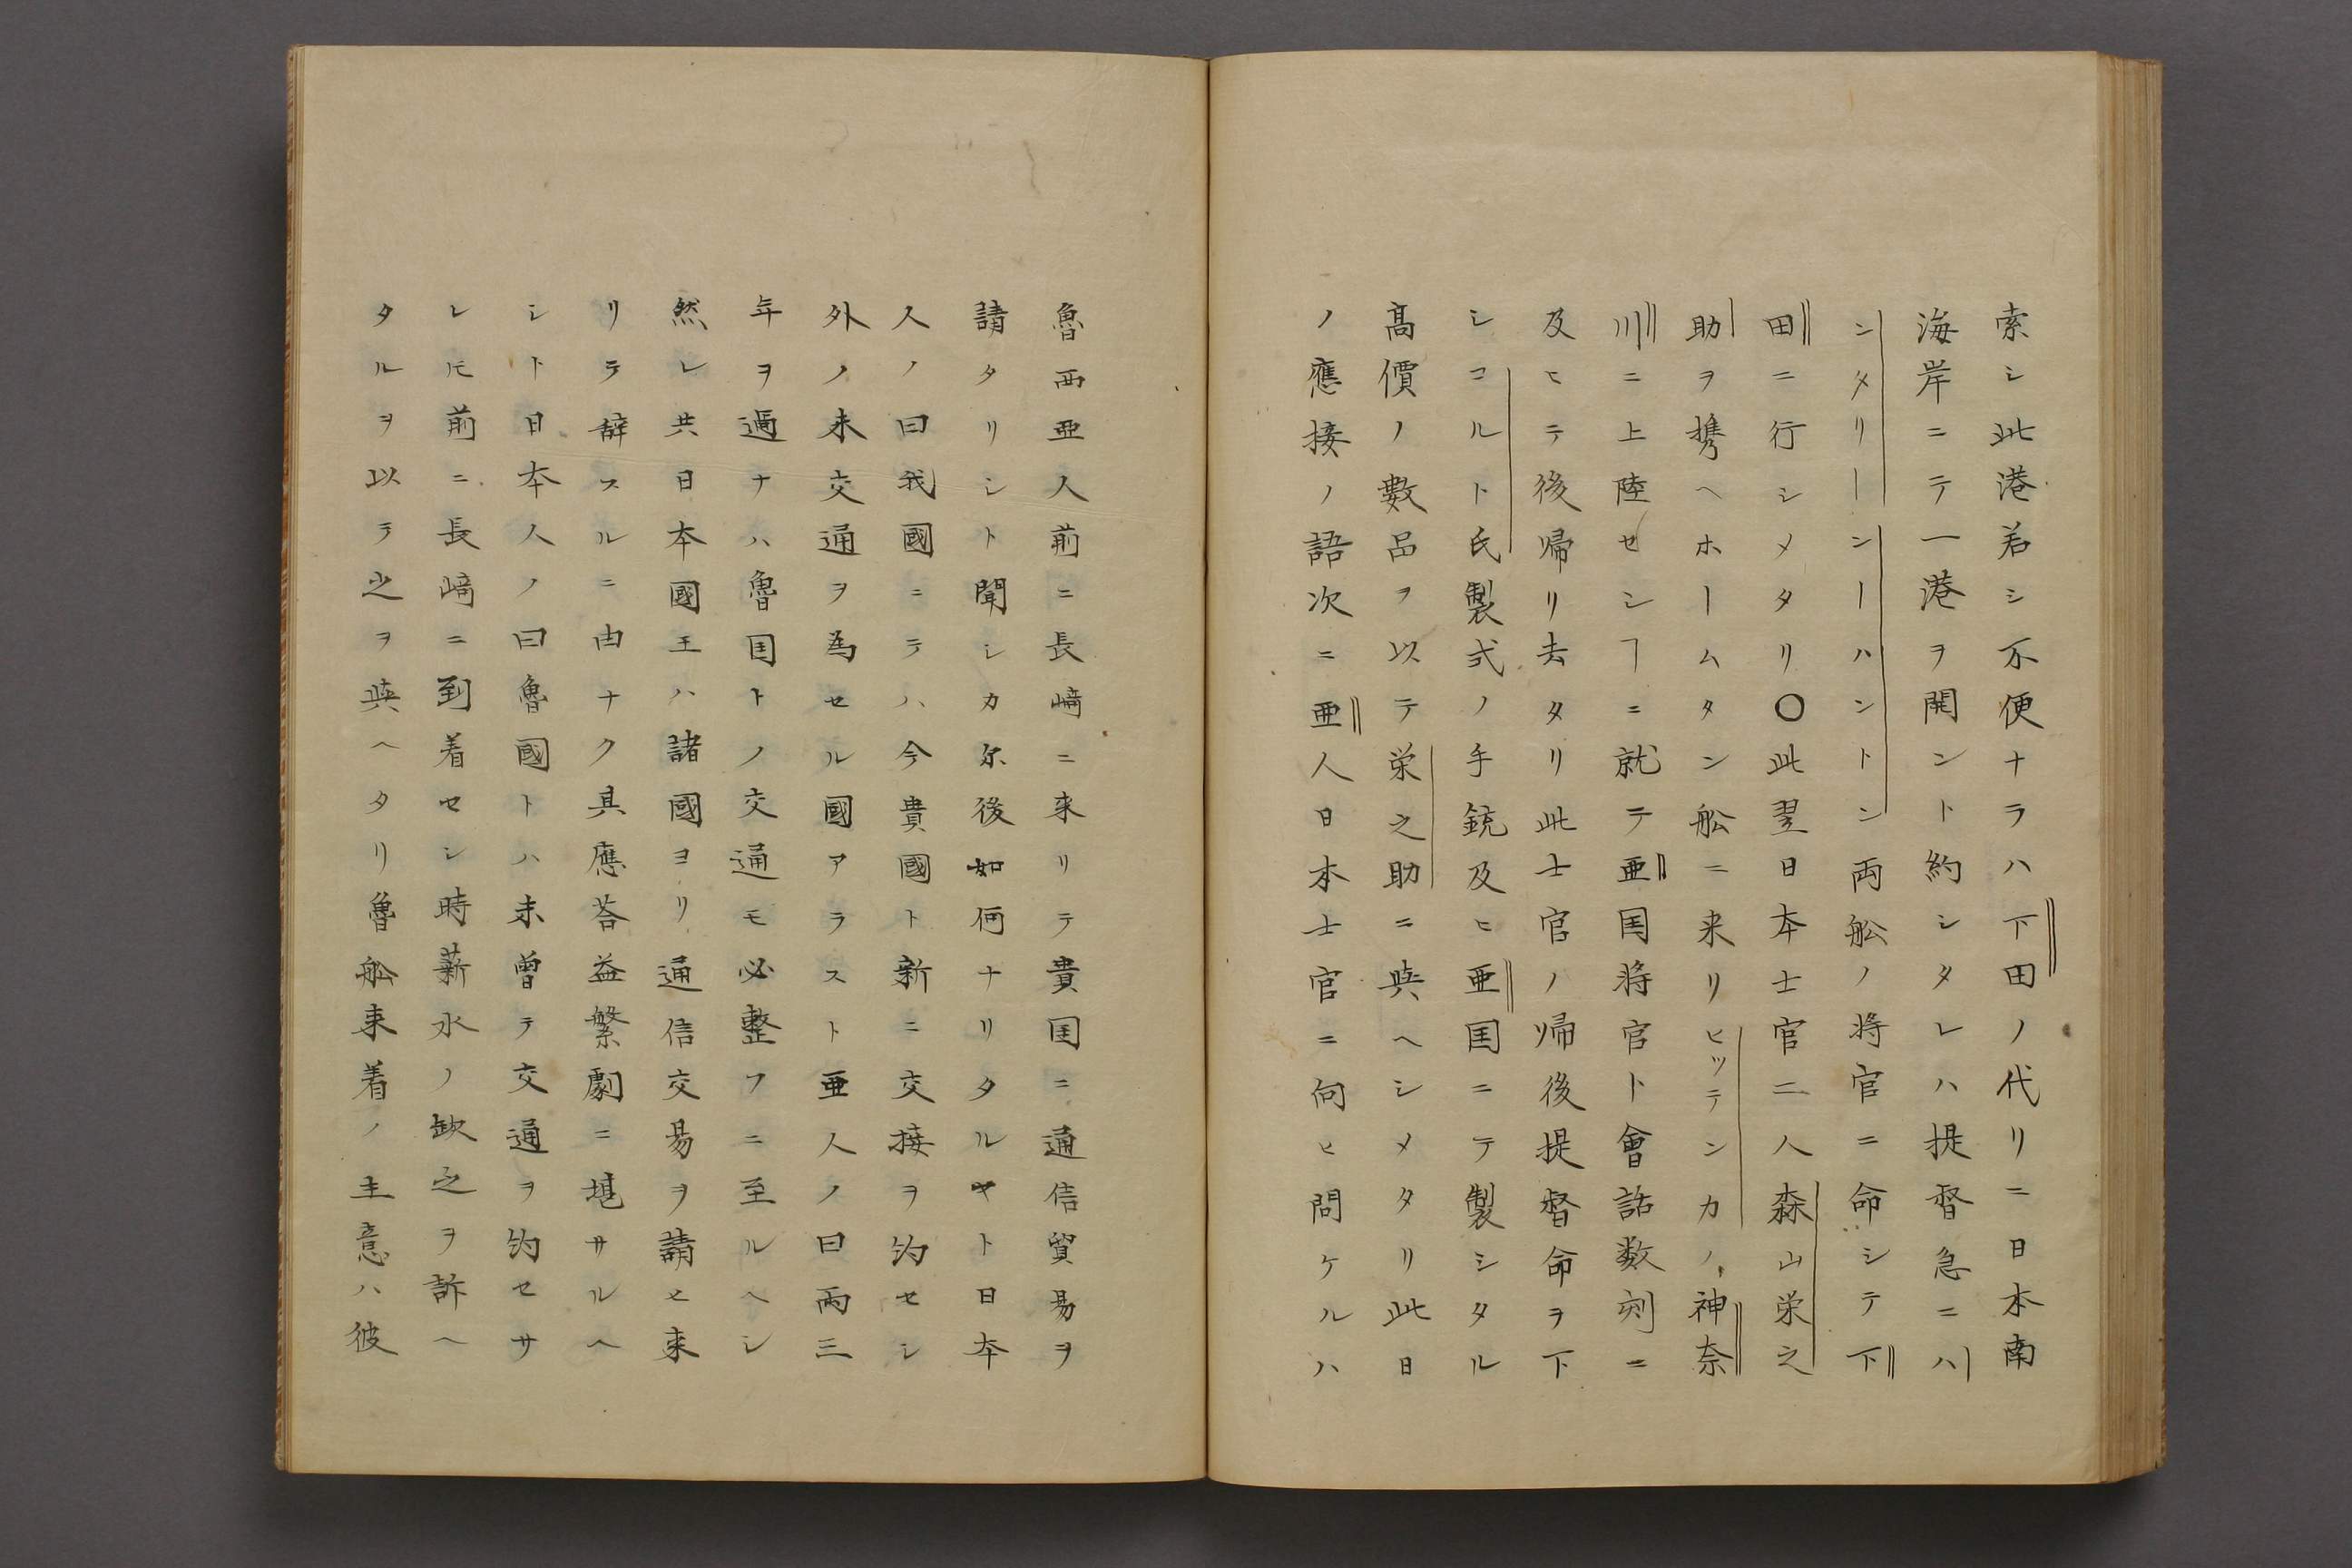 索シ此港若シ不便ナラハ下田ノ代リニ日本南
海岸ニテ一港ヲ開ント約シタレハ提督急ニハ
ンタリーンーハントン両舩ノ将官ニ命シテ下
田ニ行シメタリ〇此翌日本士官二人森山栄之
助ヲ携ヘホームタン舩ニ来リヒッテンカノ神奈
川ニ上陸セシヿニ就テ亜国将官ト會話数刻ニ
及ヒテ後帰リ去タリ此士官ノ帰後提督命ヲ下
シコルト氏製式ノ手銃及ヒ亜国ニテ製シタル
髙價ノ數品ヲ以テ栄之助ニ與ヘシメタリ此日
ノ應接ノ語次ニ亜人日本士官ニ向ヒ問ケルハ
魯西亜人前ニ長﨑ニ来リテ貴国ニ通信貿易ヲ
請タリシト聞シカ尓後如何ナリタルヤト日本
人ノ曰我國ニテハ今貴國ト新ニ交接ヲ約セシ
外ノ未交通ヲ為セル國アラスト亜人ノ曰両三
年ヲ過ナハ魯国トノ交通モ必整フニ至ルヘシ
然レ共日本國王ハ諸國ヨリ通信交易ヲ請ヒ来
リテ辞スルニ由ナク其應荅益繁劇ニ堪サルヘ
シト日本人ノ曰魯國トハ未曽テ交通ヲ約セサ
レ𪜈前ニ長﨑ニ到着セシ時薪水ノ缺乏ヲ訴ヘ
タルヲ以テ之ヲ與ヘタリ魯舩来着ノ主意ハ彼